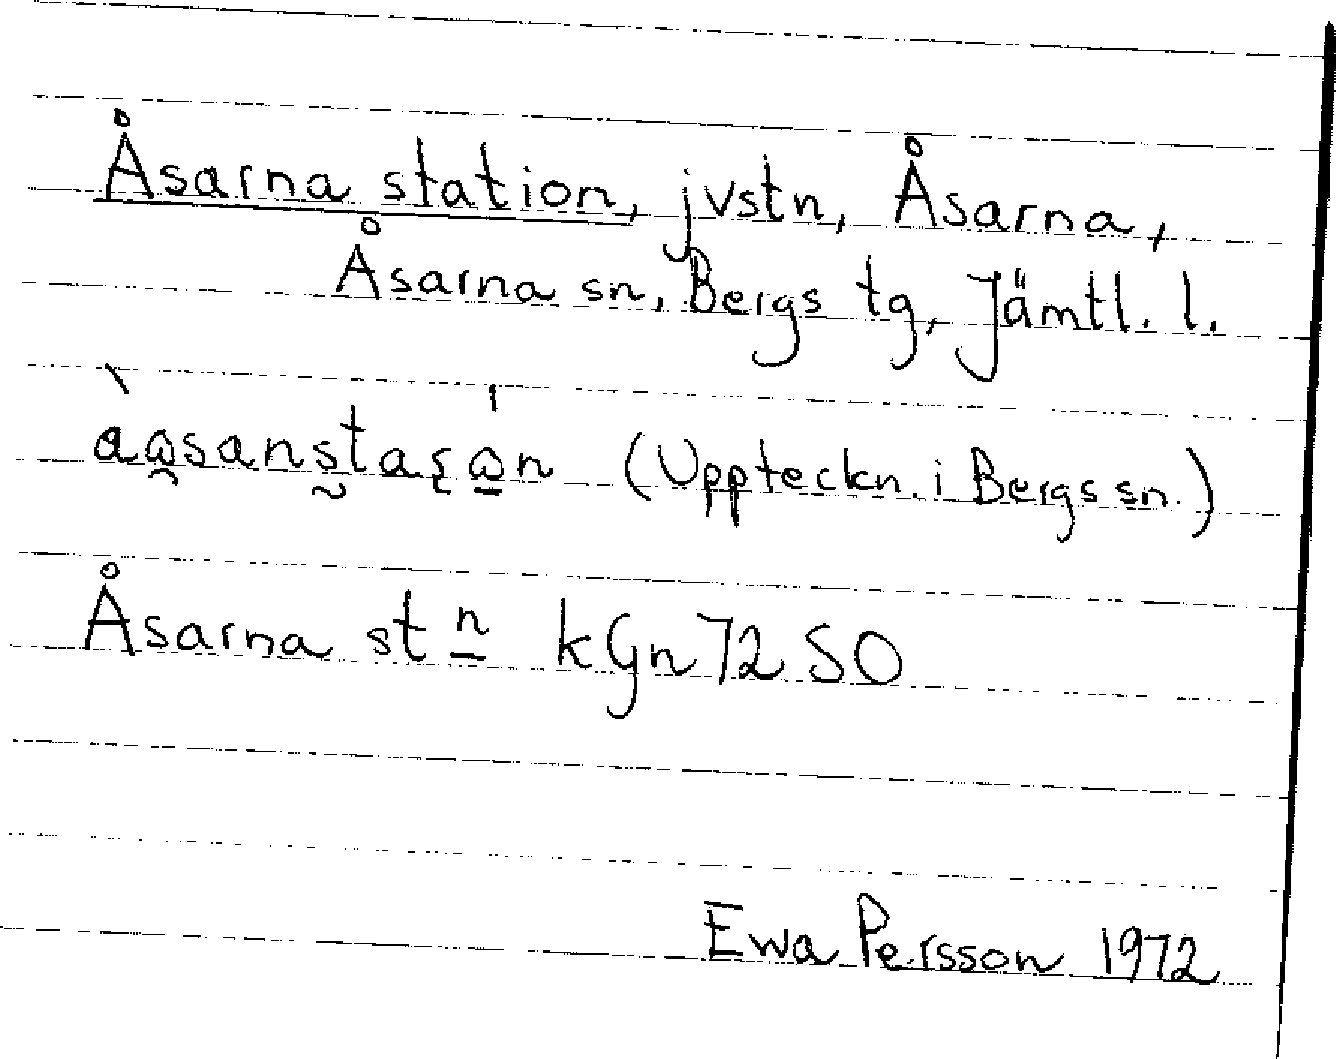 Åsarna station, jvstn, Åsarna,
Åsarna sn, Bergs tg, Jämtl. l.
(Uppteckn. i Bergs sn.)
Åsarna stn kGn 72 SO
Ewa Persson 1972